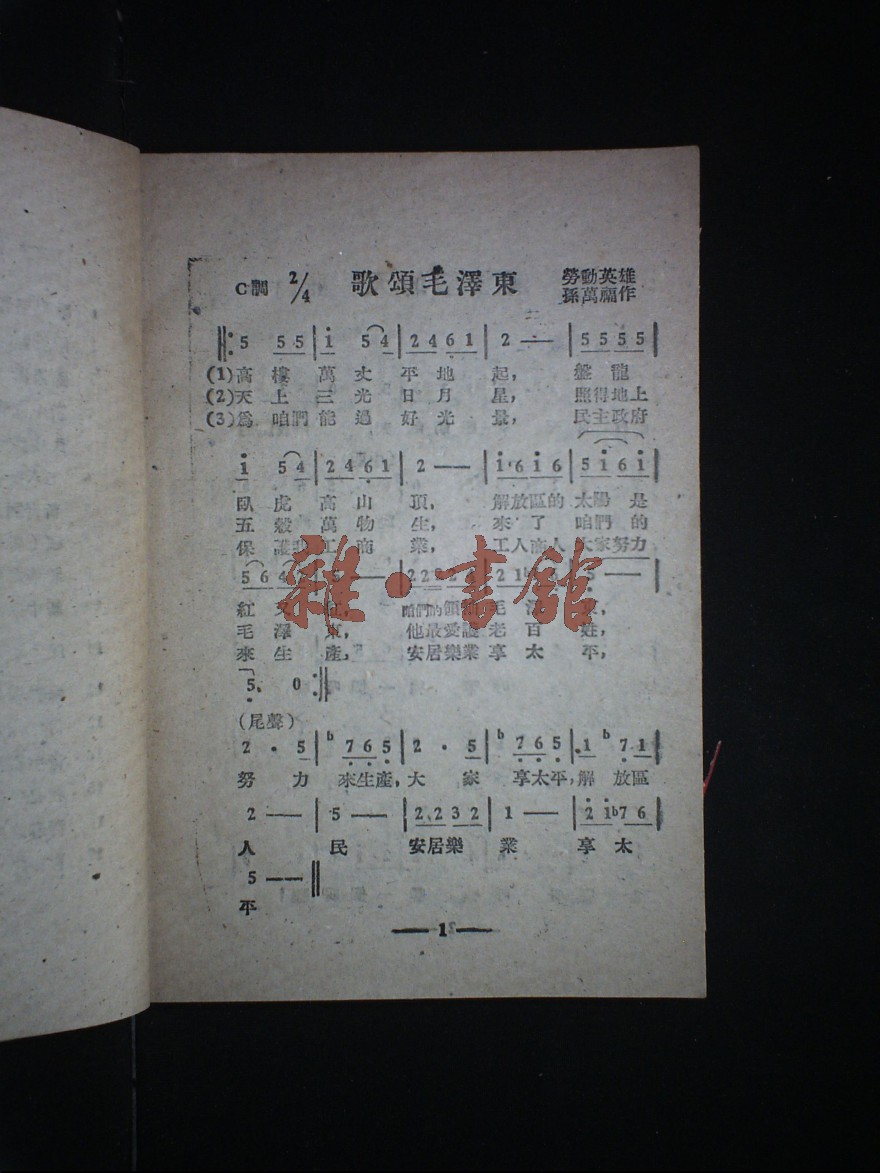 C調 2/4 歌頌毛澤東 勞動英雄
孫萬福作
5 55 | i 54 | 24 61 | 2 —— | 55 55 |
(1)高樓萬丈平地起，盤龍
(2)天上三光日月星，照得地上
(3)爲咱們能過好光景，民主政府
i 54 | 24 61 | 2 —— | i·6 i6 | 5i 6i |
臥虎高山頂，解放區的太陽是
五穀萬物生，來了咱們的
保護工商業，工人商人大家努力
紅又紅，咱們的領袖毛澤東，
毛澤東，他最愛護老百姓，
來生產，安居樂業享太平，
5、 0 :||
(尾聲)
2 · 5 | b 7 6 5 | 2 · 5 | b 7 6 5 | 1 b 7 1 |
努力來生產，大家享太平，解放區
2 —— | 5 —— | 22 32 | 1 —— | 2i b76 |
人民安居樂業享太
5 —— ||
平
—— 1 ——
雜·書館